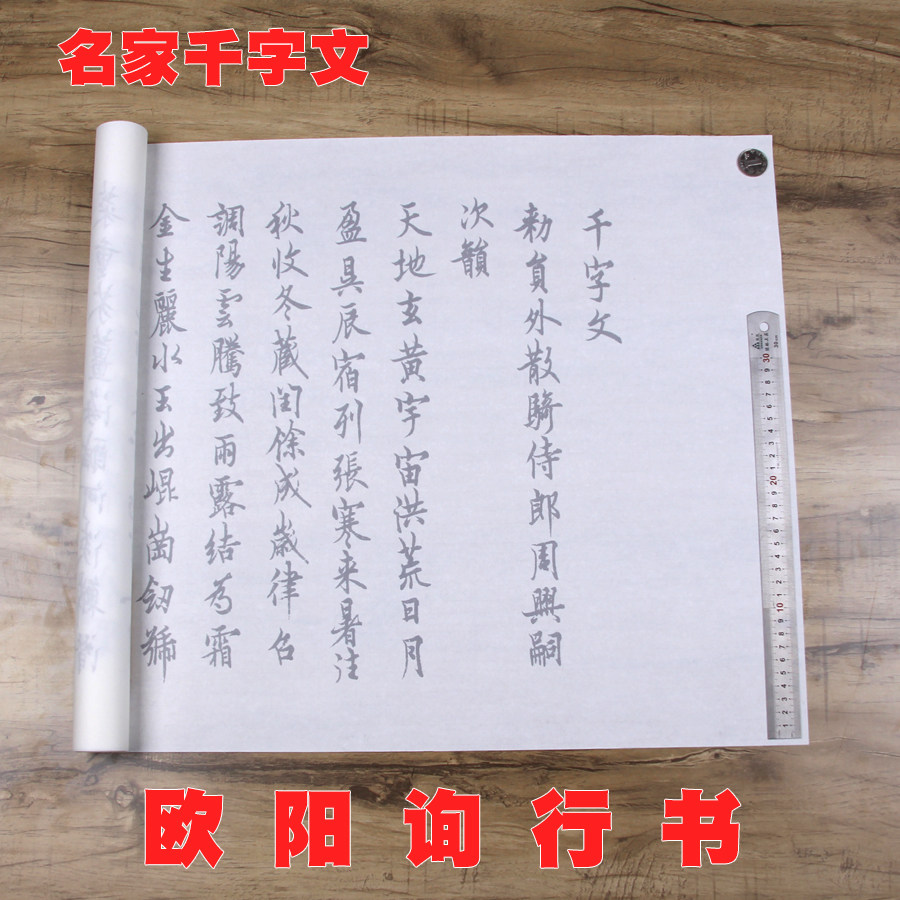 名家千字文
千字文
勅員外散騎侍郎周興嗣
次韻
天地玄黃宇宙洪荒日月
盈昃辰宿列張寒来暑往
秋收冬藏閏餘成歲律召
調陽雲騰致雨露結為霜
金生麗水玉出崐崗劒號
欧阳询行书